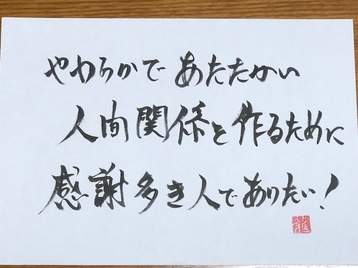 やわらかで あたたかい
人間関係を作るために
感謝多き人でありたい!